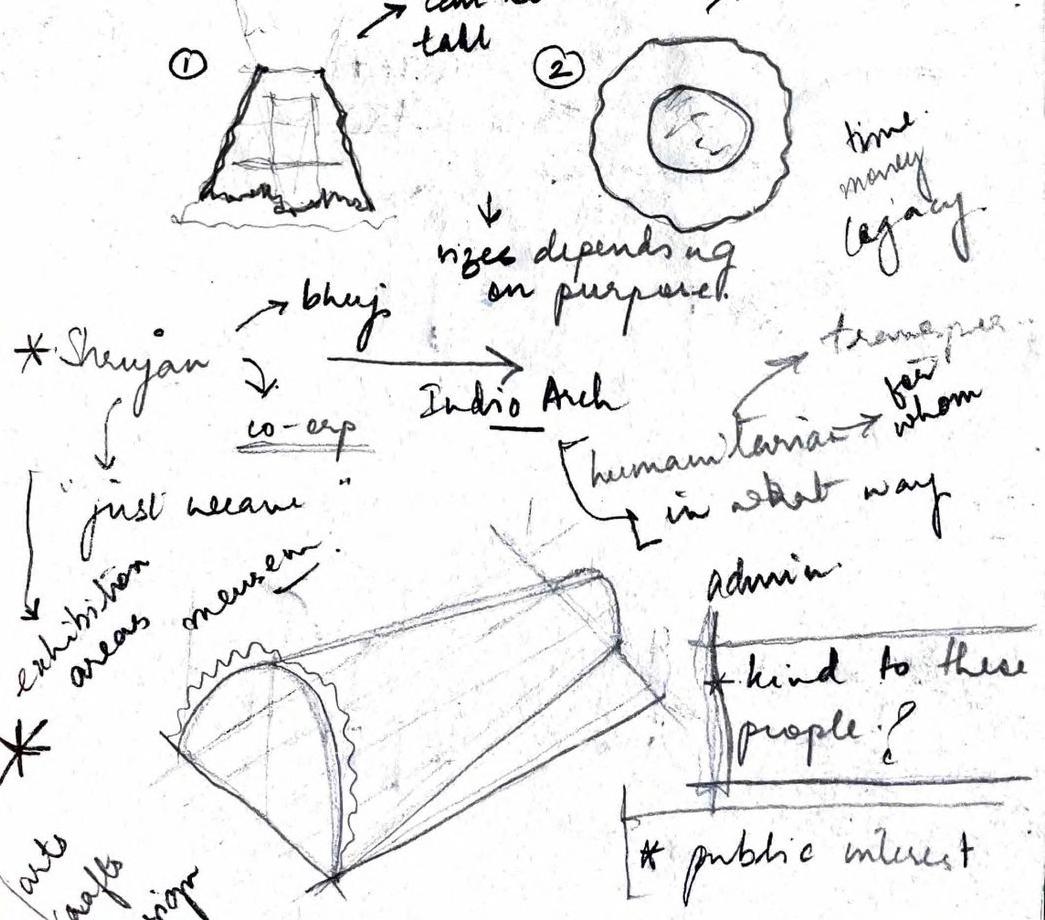 tall
1
2
time
money
legacy
sizes depending
on purpose.
bhuj
* Shrujan
Indio Arch
for
whom
humanitarian
in what way
"just weave"
exhibition
areas
admin
* kind to these
people ?
* public interest
*
arts
crafts